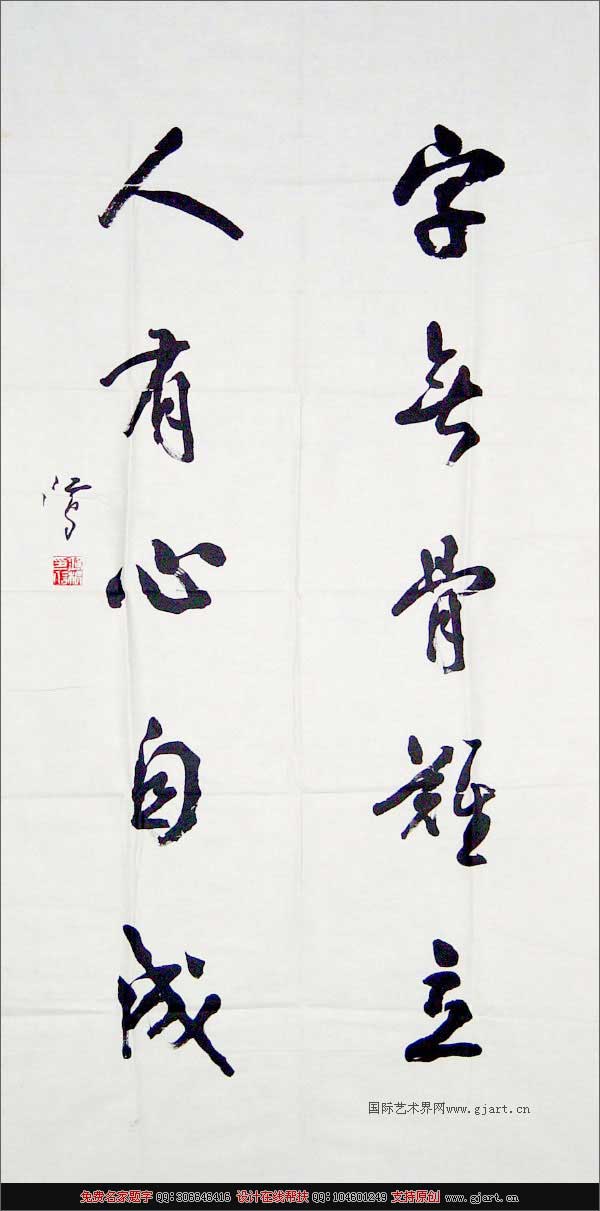 字无骨難立
人有心自成
国际艺术界网www.gjart.cn
免费名家题字 QQ:306846416 设计在线帮扶 QQ:104601249 支持原创 www.gjart.cn